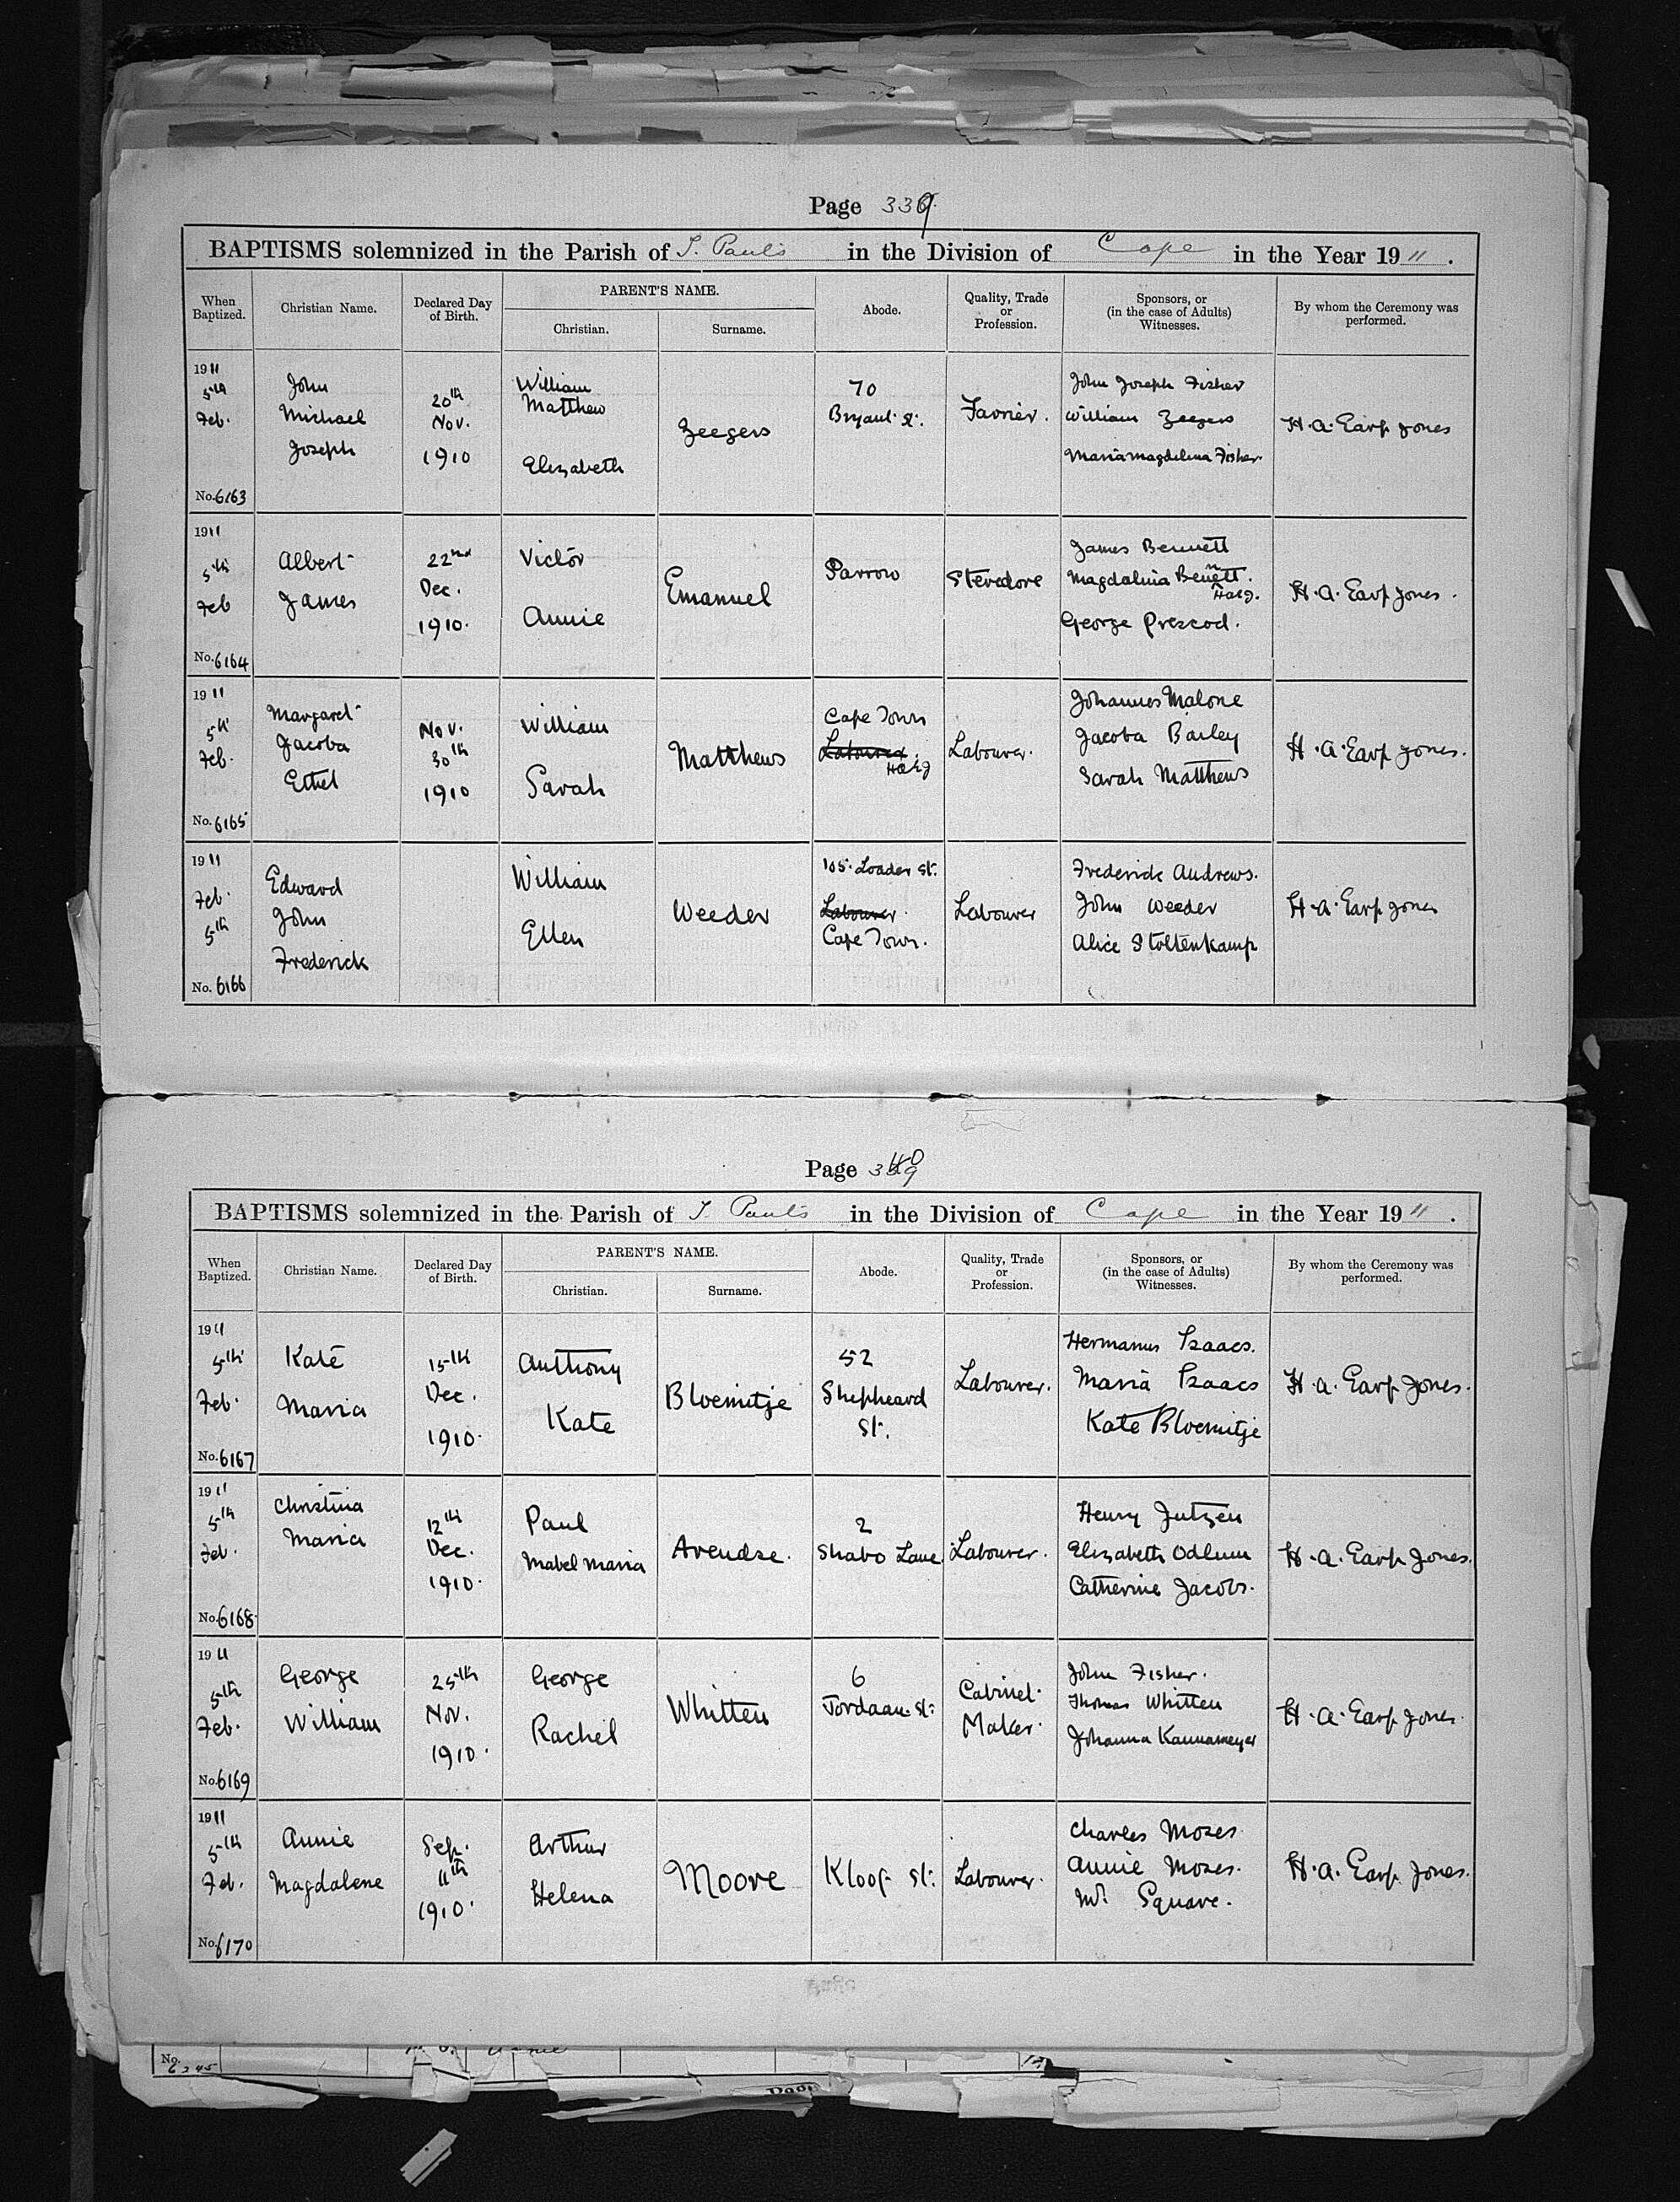 Page 339.
BAPTISMS solemnized in the Parish of S. Paul's in the Division of Cape in the Year 1911.
When Baptized.
Christian Name.
Declared Day of Birth.
PARENT'S NAME.
Christian.
Surname.
Abode.
Quality, Trade or Profession.
Sponsors, or (in the case of Adults) Witnesses.
By whom the Ceremony was performed.
1911
5th
Feb.
No. 6163
John
Michael
Joseph
20th
Nov.
1910
William
Matthew
Elizabeth
Zeegers
70
Bryant St.
Farrier.
John Joseph Fisher
William Zeegers
Maria Magdelina Fisher.
H. A. Earp Jones
1911
5th
Feb
No. 6164
Albert
James
22nd
Dec.
1910.
Victor
Annie
Emanuel
Parrow
Stevedore
James Bennett
Magdalina Bennett.
HAEJ.
George Prescod.
H. A. Earp Jones.
1911
5th
Feb.
No. 6165
Margaret
Jacoba
Ethel
Nov.
30th
1910
William
Sarah
Matthews
Cape Town
Labourer.
HAEJ
Labourer.
Johannes Malone
Jacoba Barley
Sarah Matthews
H. A. Earp Jones.
1911
Feb.
5th
No. 6166
Edward
John
Frederick
William
Ellen
Weeder
105. Loader St.
Labourer.
Cape Town.
Labourer
Frederick Andrews.
John Weeder
Alice Stoltenkamp
H. A. Earp Jones
Page 340
BAPTISMS solemnized in the Parish of S. Paul's in the Division of Cape in the Year 1911.
When Baptized.
Christian Name.
Declared Day of Birth.
PARENT'S NAME.
Christian.
Surname.
Abode.
Quality, Trade or Profession.
Sponsors, or (in the case of Adults) Witnesses.
By whom the Ceremony was performed.
1911
5th
Feb.
No. 6167
Kate
Maria
15th
Dec.
1910.
Anthony
Kate
Bloemitje
52
Shepheard
St.
Labourer.
Hermanus Izaacs.
Maria Izaacs
Kate Bloemitje
H. A. Earp Jones.
1911
5th
Feb.
No. 6168.
Christina
Maria
12th
Dec.
1910.
Paul
Mabel Maria
Arendse.
2
Shabo Lane
Labourer.
Henry Jutzen
Elizabeth Odlum
Catherine Jacobs.
H. A. Earp Jones.
1911
5th
Feb.
No. 6169
George
William
25th
Nov.
1910.
George
Rachel
Whitten
6
Jordaan St.
Cabinet
Maker.
John Fisher.
Thomas Whitten
Johanna Kannameyer
H. A. Earp Jones.
1911
5th
Feb.
No. 6170
Annie
Magdalene
Sep.
11th
1910.
Arthur
Helena
Moore
Kloof St.
Labourer.
Charles Moses.
Annie Moses.
Mr. Square.
H. A. Earp Jones.
No. 6245